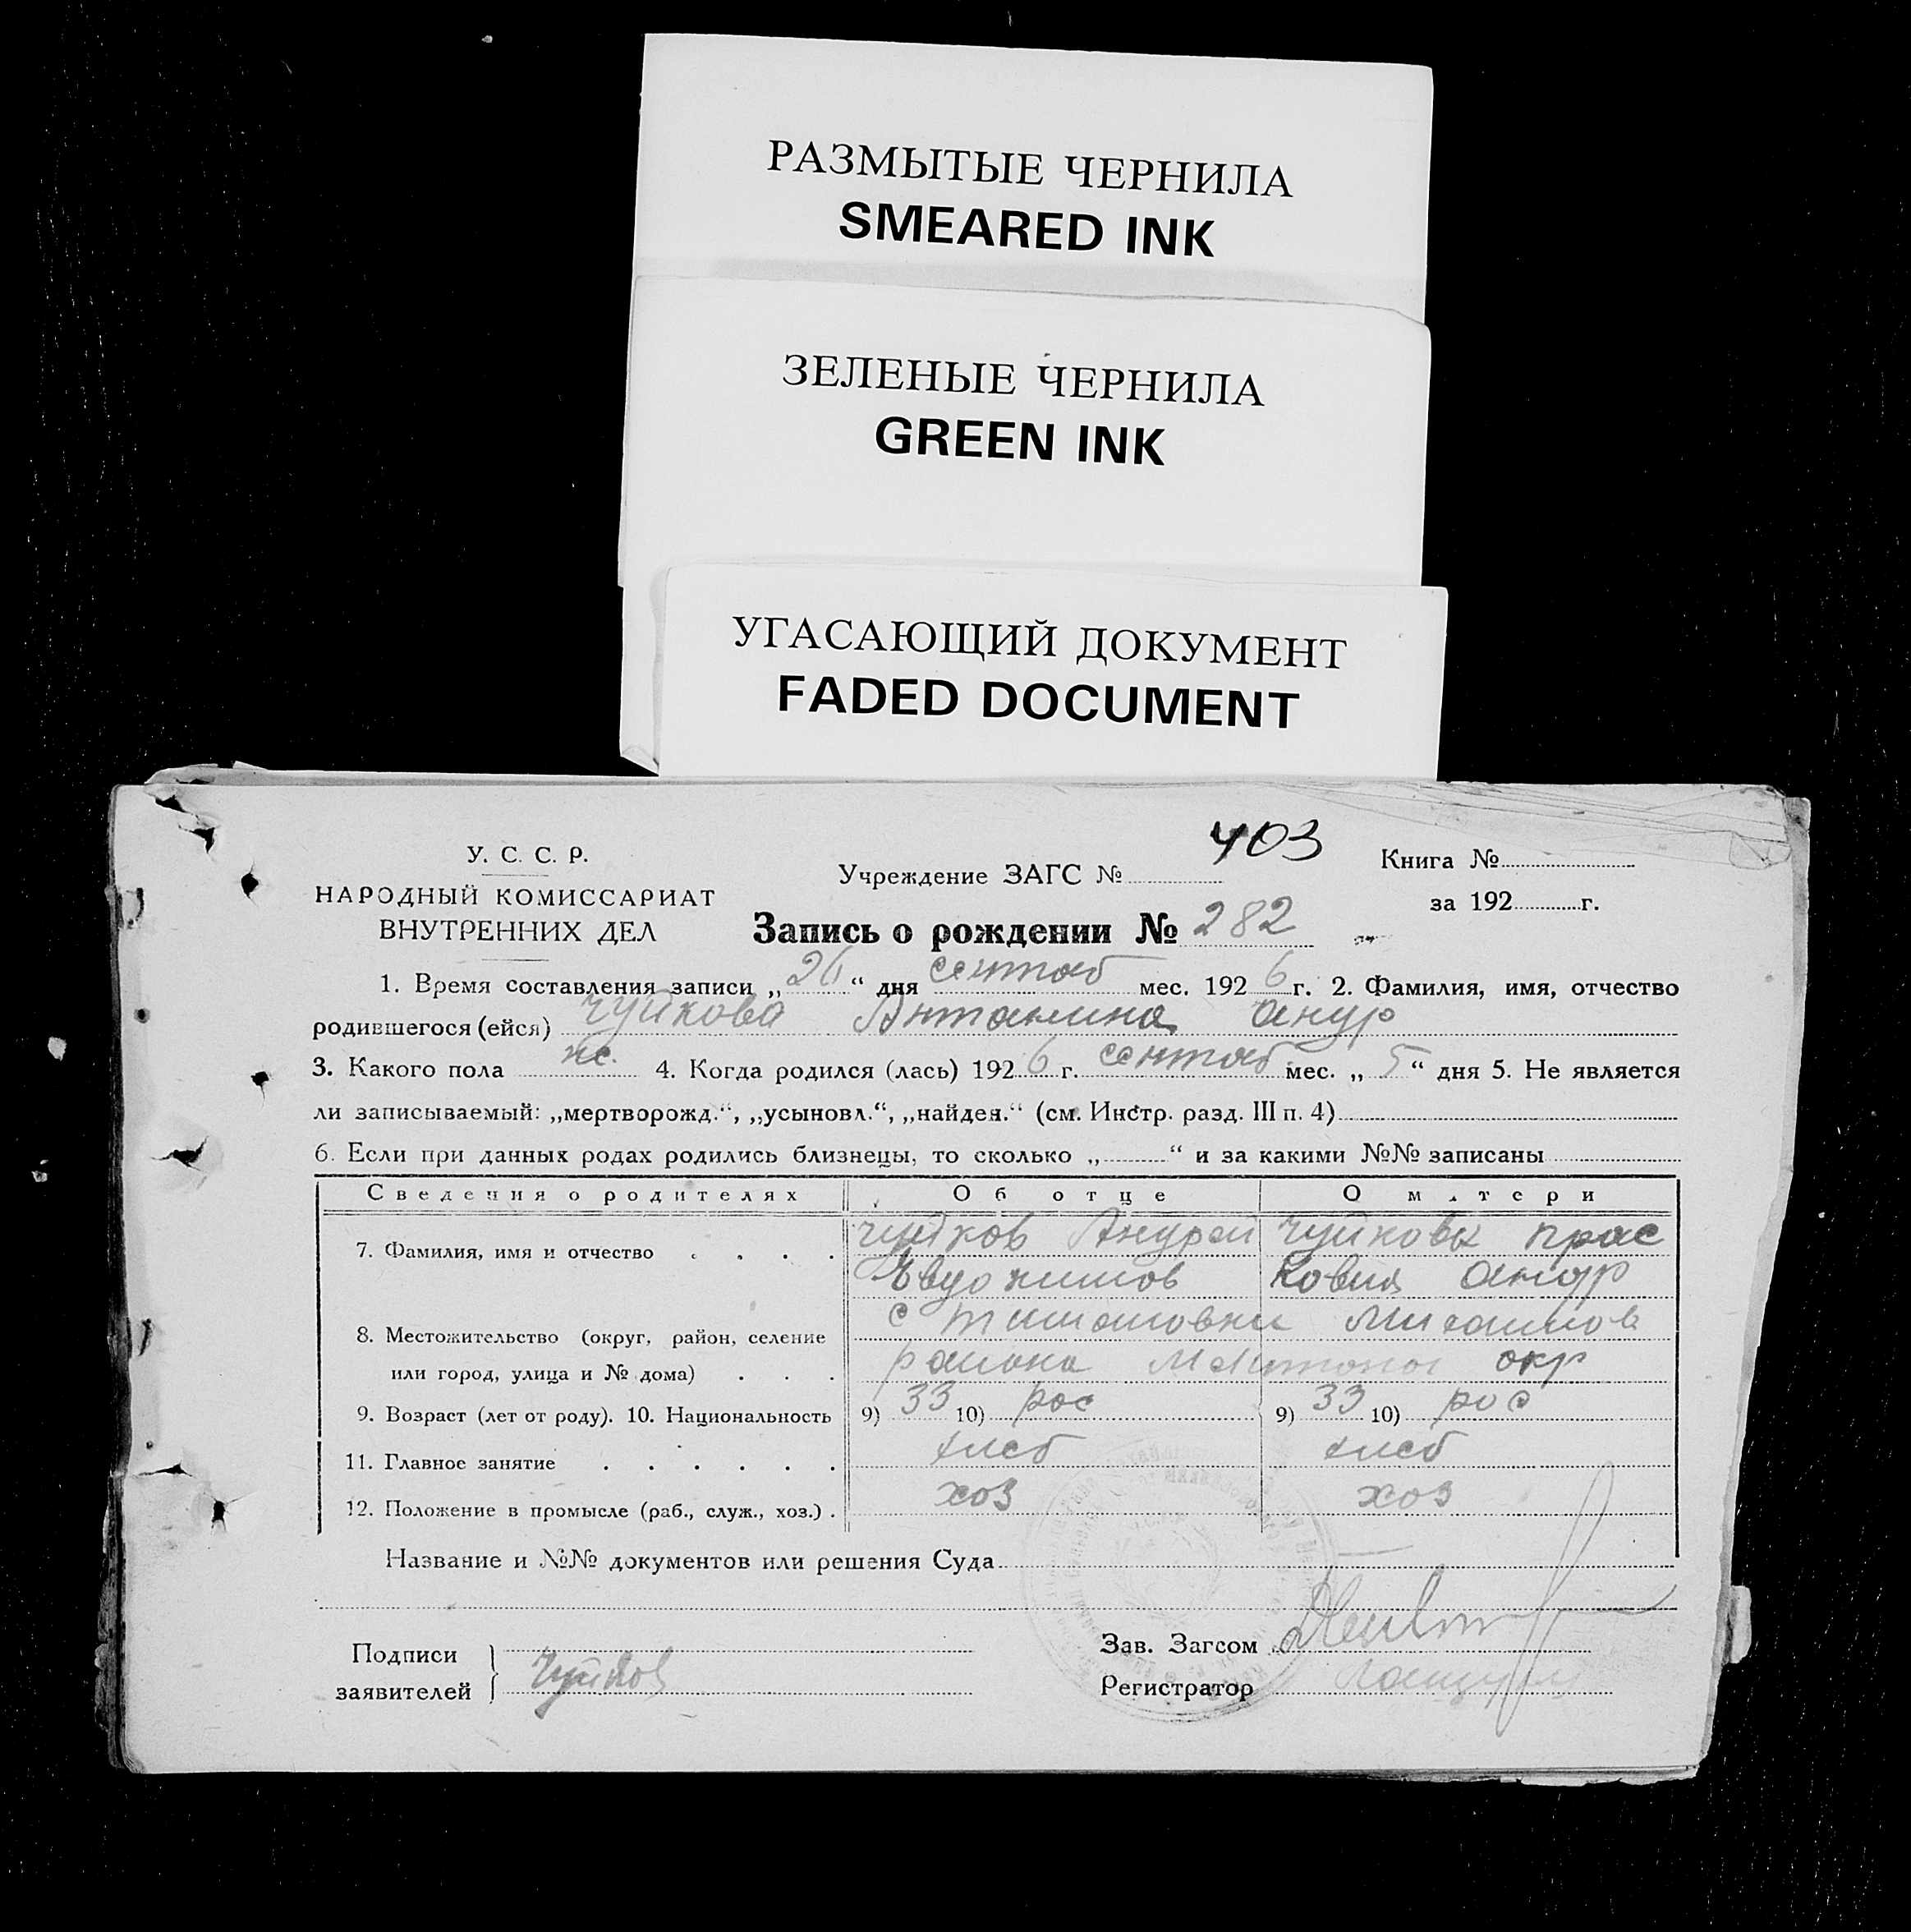 РАЗМЫТЫЕ ЧЕРНИЛА
SMEARED INK
ЗЕЛЕНЫЕ ЧЕРНИЛА
GREEN INK
УГАСАЮЩИЙ ДОКУМЕНТ
FADED DOCUMENT
403
У. С. С. Р.
НАРОДНЫЙ КОМИССАРИАТ
ВНУТРЕННИХ ДЕЛ
Учреждение ЗАГС №
Книга №
за 192 г.
Запись о рождении № 282
1. Время составления записи „26“ дня сентяб мес. 1926 г. 2. Фамилия, имя, отчество
родившегося (ейся) Чуйкова Антанина Андр
3. Какого пола ж. 4. Когда родился (лась) 1926 г. сентяб мес. „5“ дня 5. Не является
ли записываемый: „мертворожд.“, „усыновл.“, „найден.“ (см. Инстр. разд. III п. 4)
6. Если при данных родах родились близнецы, то сколько „ “ и за какими №№ записаны
Сведения о родителях Об отце О матери
7. Фамилия, имя и отчество . . . . Чуйков Андрей Чуйкова Прас
Евдокимов ковия Андр
8. Местожительство (округ, район, селение с Тимашовки Михайлов
или город, улица и № дома) . . . района Мелитопол окр
9. Возраст (лет от роду). 10. Национальность 9) 33 10) рос 9) 33 10) рос
11. Главное занятие . . . . . . хлеб хлеб
12. Положение в промысле (раб., служ., хоз.) . хоз хоз
Название и №№ документов или решения Суда
Подписи
заявителей
Чуйков
Зав. Загсом
Регистратор